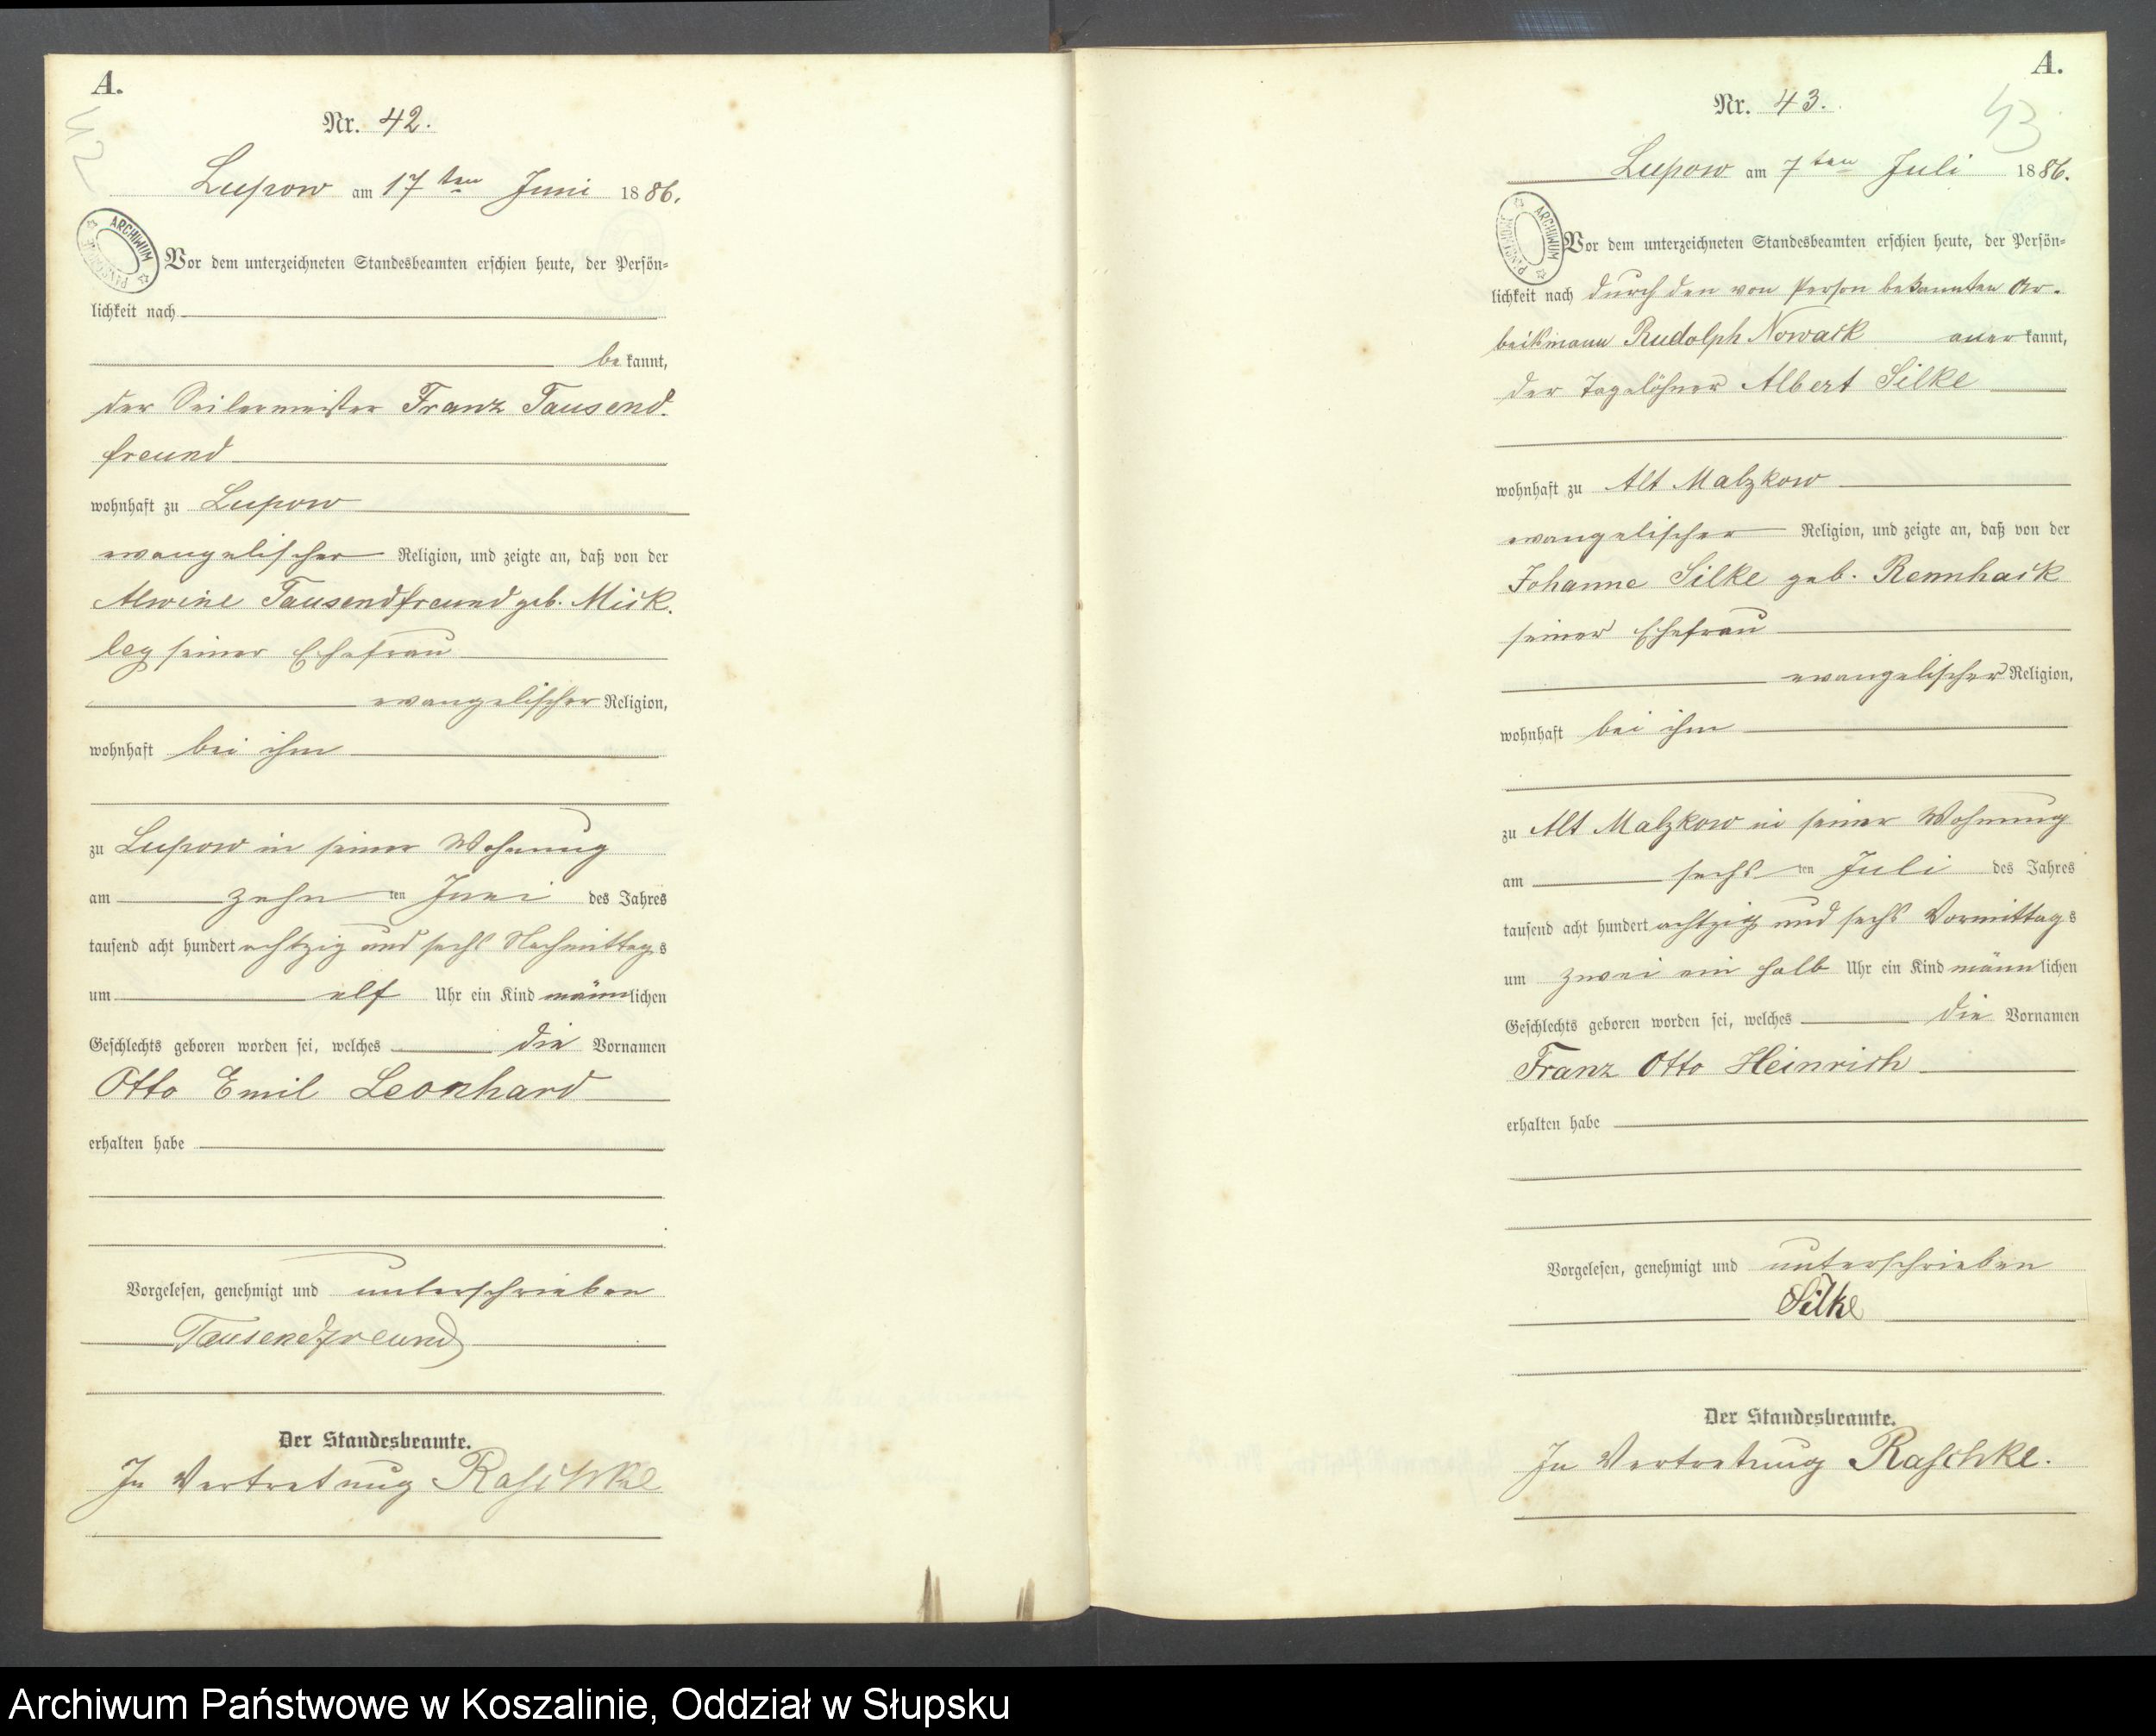 A.
42
Nr. 42.
Lupow am 17ten Juni 1886.
ARCHIWUM PAŃSTWOWE
Vor dem unterzeichneten Standesbeamten erschien heute, der Persön-
lichkeit nach
bekannt,
der Seilermeister Franz Tausend-
freund
wohnhaft zu Lupow
evangelischer Religion, und zeigte an, daß von der
Alwine Tausendfreund geb. Mick-
ley seiner Ehefrau
evangelischer Religion,
wohnhaft bei ihm
zu Lupow in seiner Wohnung
am zehn ten Juni des Jahres
tausend acht hundert achtzig und sechs Nachmittags
um elf Uhr ein Kind männlichen
Geschlechts geboren worden sei, welches die Vornamen
Otto Emil Leonhard
erhalten habe
Vorgelesen, genehmigt und unterschrieben
Tausendfreund
Der Standesbeamte.
In Vertretung Raschke
A.
43
Nr. 43.
Lupow am 7ten Juli 1886.
ARCHIWUM PAŃSTWOWE
Vor dem unterzeichneten Standesbeamten erschien heute, der Persön-
lichkeit nach durch den von Person bekannten Ar-
beitsmann Rudolph Nowack anerkannt,
der Tagelöhner Albert Silke
wohnhaft zu Alt Malzkow
evangelischer Religion, und zeigte an, daß von der
Johanne Silke geb. Rennhack
seiner Ehefrau
evangelischer Religion,
wohnhaft bei ihm
zu Alt Malzkow in seiner Wohnung
am sechs ten Juli des Jahres
tausend acht hundert achtzig und sechs Vormittags
um zwei ein halb Uhr ein Kind männlichen
Geschlechts geboren worden sei, welches die Vornamen
Franz Otto Heinrich
erhalten habe
Vorgelesen, genehmigt und unterschrieben
Silke
Der Standesbeamte.
In Vertretung Raschke.
Archiwum Państwowe w Koszalinie, Oddział w Słupsku